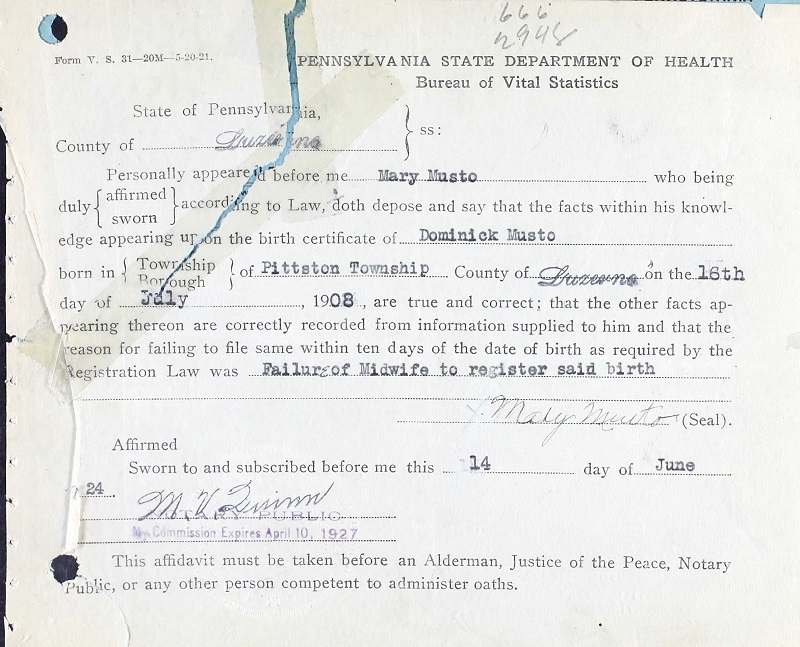 666
2948
Form V. S. 31—20M—5-20-21.
PENNSYLVANIA STATE DEPARTMENT OF HEALTH
Bureau of Vital Statistics
State of Pennsylvania,
County of Luzerne } ss:
Personally appeared before me Mary Musto who being
duly { affirmed sworn } according to Law, doth depose and say that the facts within his knowl-
edge appearing upon the birth certificate of Dominick Musto
born in { Township Borough } of Pittston Township County of Luzerne on the 16th
day of July, 1908, are true and correct; that the other facts ap-
pearing thereon are correctly recorded from information supplied to him and that the
reason for failing to file same within ten days of the date of birth as required by the
Registration Law was Failure of Midwife to register said birth
x Mary Musto (Seal).
Affirmed
Sworn to and subscribed before me this 14 day of June
24
M. V. Quinn
NOTARY PUBLIC
My Commission Expires April 10, 1927
This affidavit must be taken before an Alderman, Justice of the Peace, Notary
Public, or any other person competent to administer oaths.